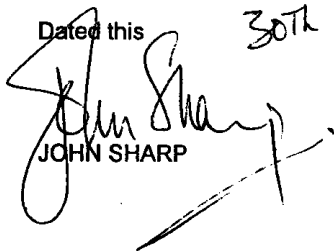 Dated this 30Th
John Sharp
JOHN SHARP